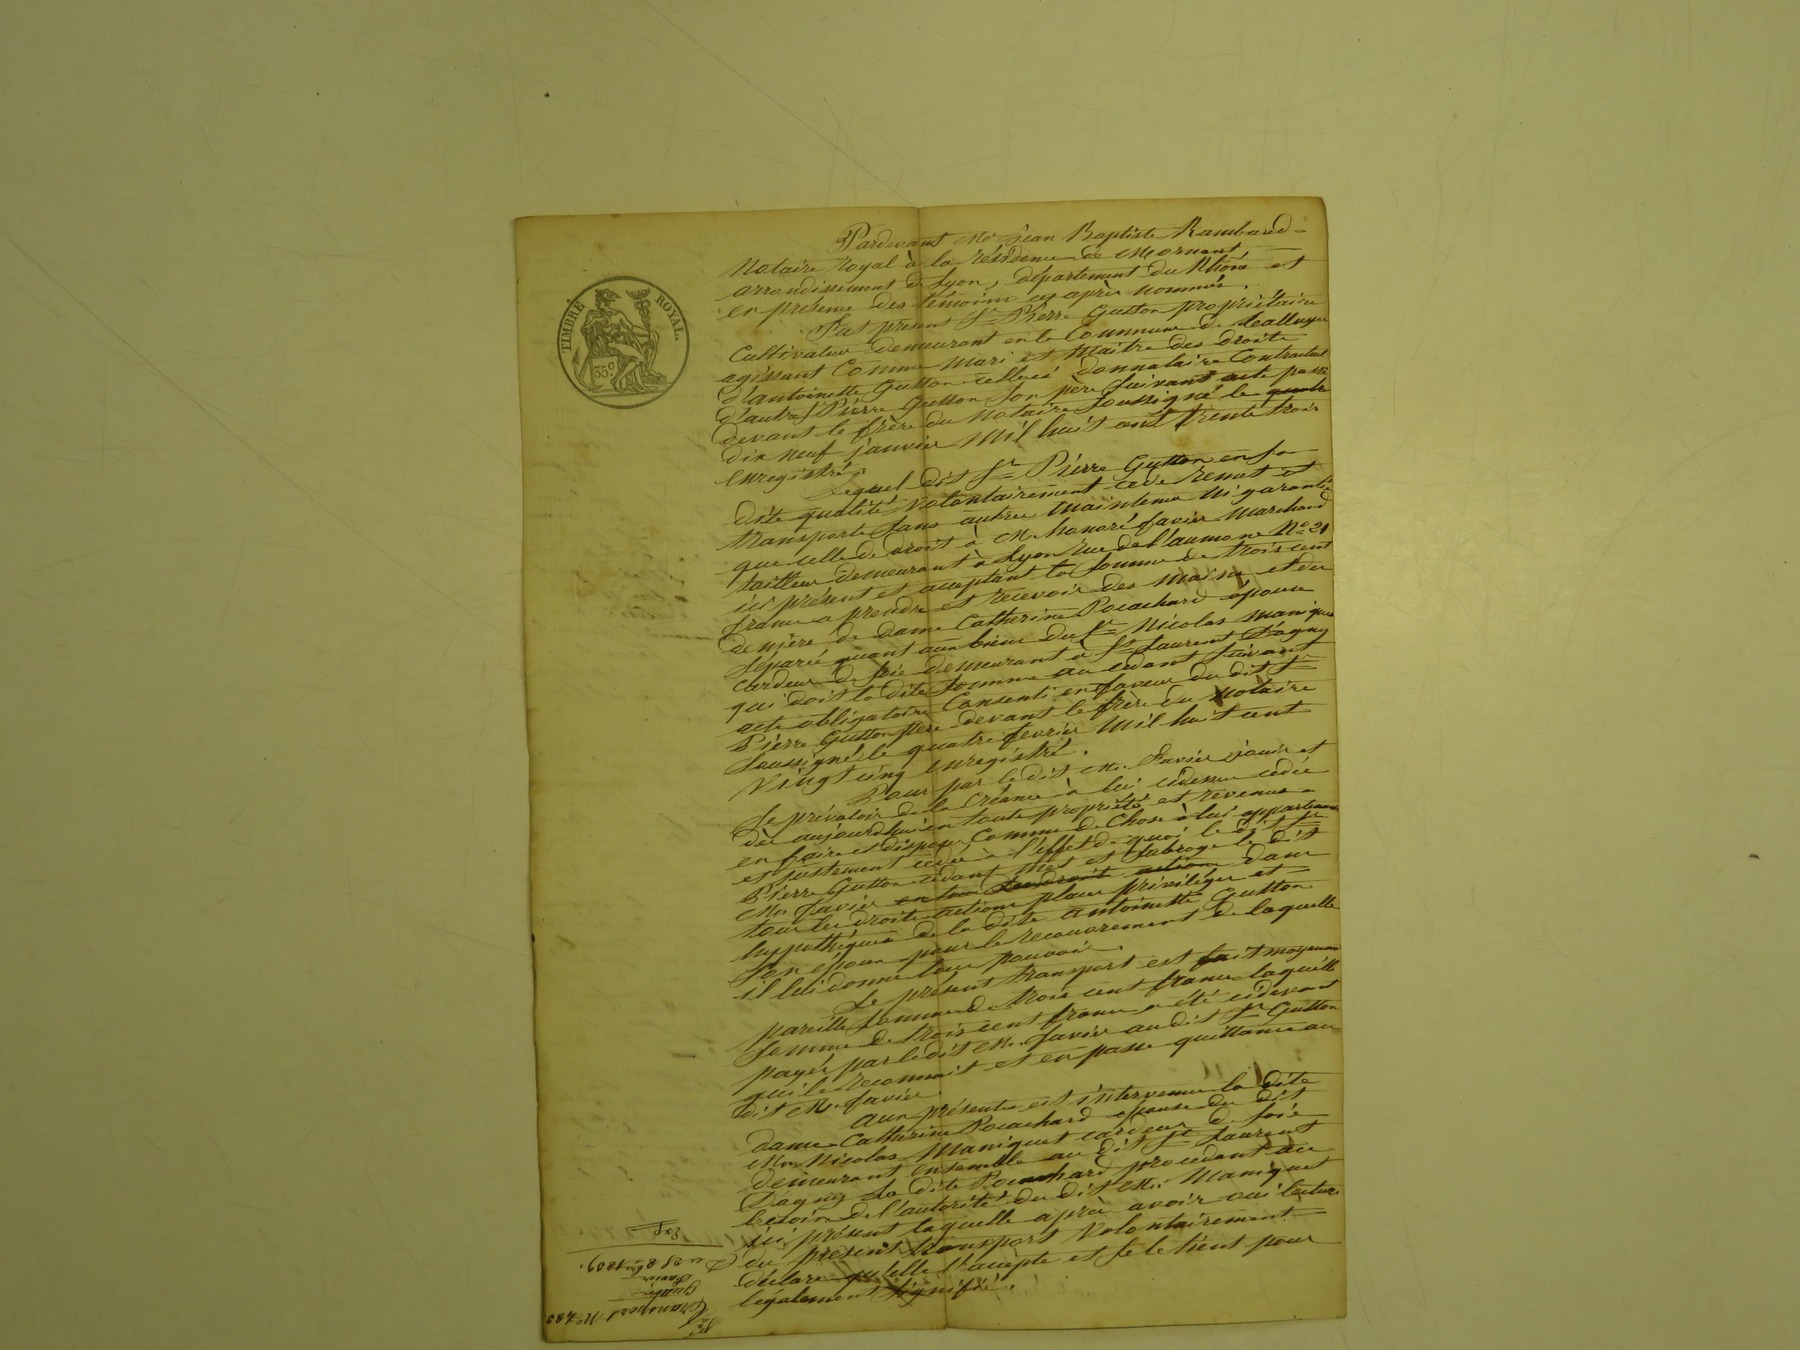 TIMBRE ROYAL
35c.
Pardevant Me. Jean Baptiste Rambaud
Notaire royal à la résidence de Mornant,
arrondissement de Lyon, département du Rhône et
en présence des témoins cy après nommés.
Fut présent Sr. Pierre Gutton propriétaire
Cultivateur demeurant en la Commune de
agissant Comme Mari et Maitre des droits
d'antoinette Gutton celleci donnataire Contractuel
d'autre Pierre Gutton son père suivant acte passé
devant le frère du Notaire soussigné le
dix neuf janvier Mil huit cent trente trois
enregistré.
Lequel dit Sr. Pierre Gutton en sa
dite qualité volontairement cède remet et
transporte sans autre maintenue ni garantie
que celle de droit à M. honoré favier Marchand
tailleur demeurant à Lyon rue de l'aumone No. 21
ici présent et acceptant la somme de trois cent
francs a prendre et recevoir des mains et du
denière de dame Catherine Pouchard épouse
séparée quant aux biens du Sr. Nicolas Maniquet
Cardeur de soie demeurant à St. Laurent D'agny
qui doit la dite somme au cédant suivant
acte obligatoire Consenti en faveur du dit Sr.
Pierre Gutton père devant le frère du Notaire
soussigné le quatre fevrier Mil huit cent
vingt cinq enregistré.
Pour par le dit M. Favier jouir et
se prévaloir de la Créance à lui cidessus cédée
dès aujourdhui en toute propriété et revenus
en faire et disposer Comme de Chose à lui appartenant
et justement cédée à l'effet de quoi le dit Sr.
Pierre Gutton cédant Met et subroge le dit
Mr. favier dans
tous les droits actions place privilèges et
hypothèques de la dite antoinette Gutton
son épouse pour le recouvrement de laquelle
il lui donne tous pouvoir.
Le présent transport est fait moyenant
pareille somme de trois cent francs laquelle
somme de trois cent francs a été cidevant
payée par le dit M. favier au dit Sr. Gutton
qui le reconnait et en passe quittance au
dit M. favier
aux présentes est intervenue la dite
dame Catherine Pouchard épouse du dit
Mr. Nicolas Maniquet cardeur de soie
demeurant ensemble au dit St. Laurent
D'agny la dite Pouchard procedant au
besoin de l'autorité du dit M. Maniquet
ici présent laquelle après avoir oui lecture
du présent transport volontairement
déclare qu'elle l'accepte et se le tient pour
légalement signifié.
Transport No. 480
Gutton
Favier
Du 25 8bre 1839.
Exp.